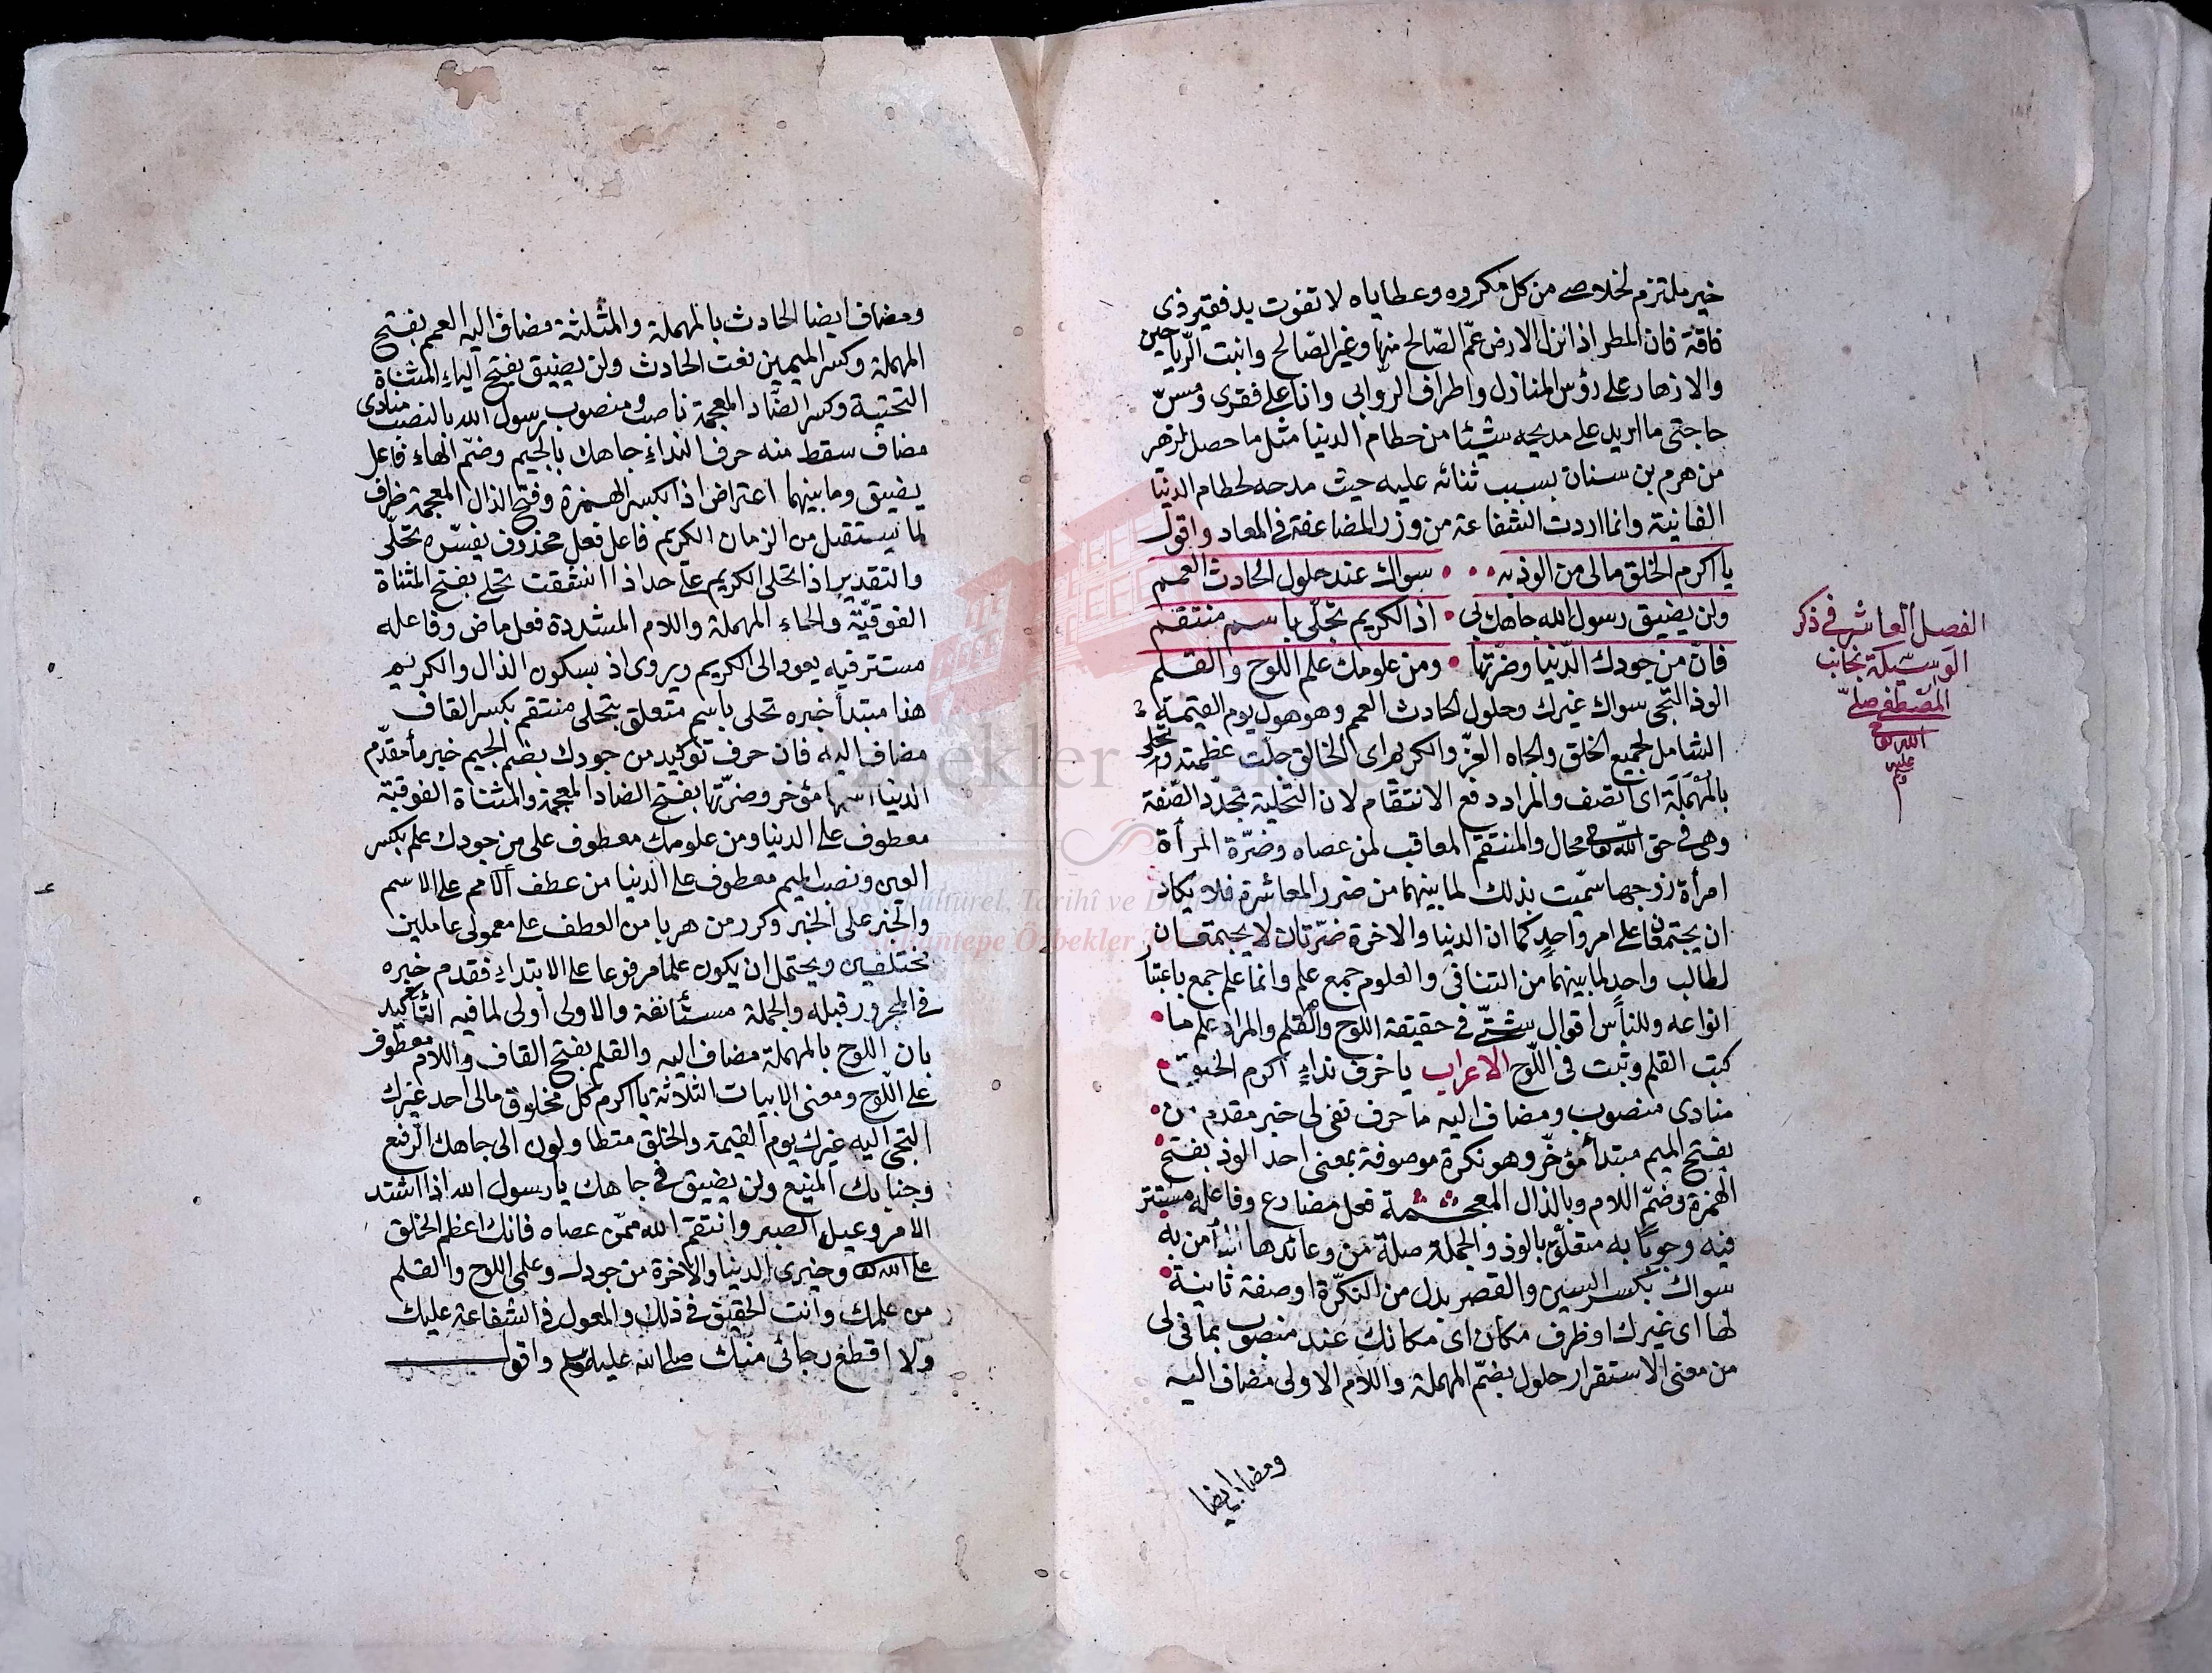 خير ملتزم لخلاصي من كل مكروه وعطاياه لا تفوت يد فقير ذى
فاقة فان المطر اذا نزل الارض عمّ الصّالح منها وغير الصّالح وانبت الرّياحين
والازهار على رؤس المنازل واطراف الروابى وانا على فقرى ومسّ
حاجتى ما اريد على مديحه شيئا من حطام الدنيا مثل ما حصل لزهير
من هرم بن سنان بسبب ثنائه عليه حيث مدحه لحطام الدنيا
الفانية وانما اردت الشفاعة من وزر المضاعفة فى المعاد واقول
يا اكرم الخلق مالى من الوذ به سواك عند حلول الحادث العمم
ولن يضيق رسول الله جاهك بى اذ الكريم تجلّى باسم منتقم
فانّ من جودك الدّنيا وضرّتها ومن علومك علم اللوح والقلم
الوذ التجى سواك غيرك وحلول الحادث العمم وهو هول يوم القيمة
الشامل لجميع الخلق والجاه العزّ والكريم اى الخالق جلّت عظمته وتحلى
بالمهملة اى اتصف والمراد دفع الانتقام لان التحلية تجدّد الصّفة
وهى فى حق الله تعالى محال والمنتقم المعاقب لمن عصاه وضرّة المرأة
امرأة زوجها سمّيت بذلك لما بينهما من ضرر المعاشرة فلا يكاد
ان يجتمعان على امر واحدٍ كما ان الدنيا والاخرة ضرّتان لا يجتمعان
لطالب واحدٍ لما بينهما من التنافى والعلوم جمع علم وانما علم جمع باعتبا
انواعه وللنّاس اقوال شتّى فى حقيقة اللوح والقلم والمراد علم ما
كتب القلم وثبت فى اللّوح الاعراب يا حرف نداءٍ اكرم الخلق
منادى منصوب ومضاف اليه ما حرف نفى لى خبر مقدم من
بفتح الميم مبتدأ مؤخّر وهو نكرة موصوفة بمعنى احد الوذ بفتح
الهمزة وضمّ اللام وبالذال المعجمة فعل مضارع وفاعله مستتر
فيه وجوبًا به متعلّق بالوذ والجملة صلة من وعائدها الهاء من به
سواك بكسر السين والقصر بدل من النكرة اوصفة ثانية
لها اى غيرك او ظرف مكان اى مكانك عند منصوب بما فى لى
من معنى الاستقرار حلول بضمّ المهملة واللام الاولى مضاف اليه
ومضاف ايضا
الفصل العاشر فى ذكر
الوسيلة بجانب
المصطفى صلّى
الله تعالى
عليه
وسلم
ومضاف ايضا الحادث بالمهملة والمثلثة مضاف اليه العمم بفتح
المهملة وكسر الميمين نعت الحادث ولن يضيق بفتح الياء المثناة
التحتية وكسر الضّاد المعجمة ناصب ومنصوب رسول الله بالنصب منادى
مضاف سقط منه حرف النداء جاهك بالجيم وضمّ الهاء فاعل
يضيق وما بينهما اعتراض اذا بكسر الهمزة وفتح الذال المعجمة ظرف
لما يستقبل من الزمان الكريم فاعل فعل محذوف يفسّره تحلّى
والتقدير اذا تحلى الكريم على حد اذا انشقت تحلى بفتح المثناة
الفوقيّة والحاء المهملة واللام المشددة فعل ماض وفاعله
مستتر فيه يعود الى الكريم ويروى اذ بسكون الذال والكريم
هذا مبتدأ خبره تحلى باسم متعلق بتحلى منتقم بكسر القاف
مضاف اليه فان حرف توكيد من جودك بضم الجيم خبرها مقدّم
الدنيا اسمها مؤخر وضرّتها بفتح الضاد المعجمة والمثناة الفوقية
معطوف على الدنيا ومن علومك معطوف على من جودك علم بكسر
العين ونصب الميم معطوف على الدنيا من عطف الاسم على الاسم
والخبر على الخبر وكرر من هربا من العطف على معمولى عاملين
مختلفين ويحتمل ان يكون علم مرفوعا على الابتداء فقدم خبره
فى المجرور قبله والجملة مستأنفة والاولى اولى لما فيه التّأكيد
بان اللوح بالمهملة مضاف اليه والقلم بفتح القاف واللام معطوف
على اللّوح ومعنى الابيات الثلاثة يا اكرم كل مخلوق مالى احد غيرك
التجى اليه غيرك يوم القيمة والخلق متطاولون الى جاهك الرّفيع
وجنابك المنيع ولن يضيق فى جاهك يا رسول الله اذا اشتد
الامر وعيل الصبر وانتقم الله ممّن عصاه فانك اعظم الخلق
على الله تعالى وخيرى الدنيا والاخرة من جودك وعلمى اللوح والقلم
من علمك وانت الحقيق فى ذلك والمعول فى الشفاعة عليك
ولا اقطع رجائى منك صلى الله عليه وسلم واقول